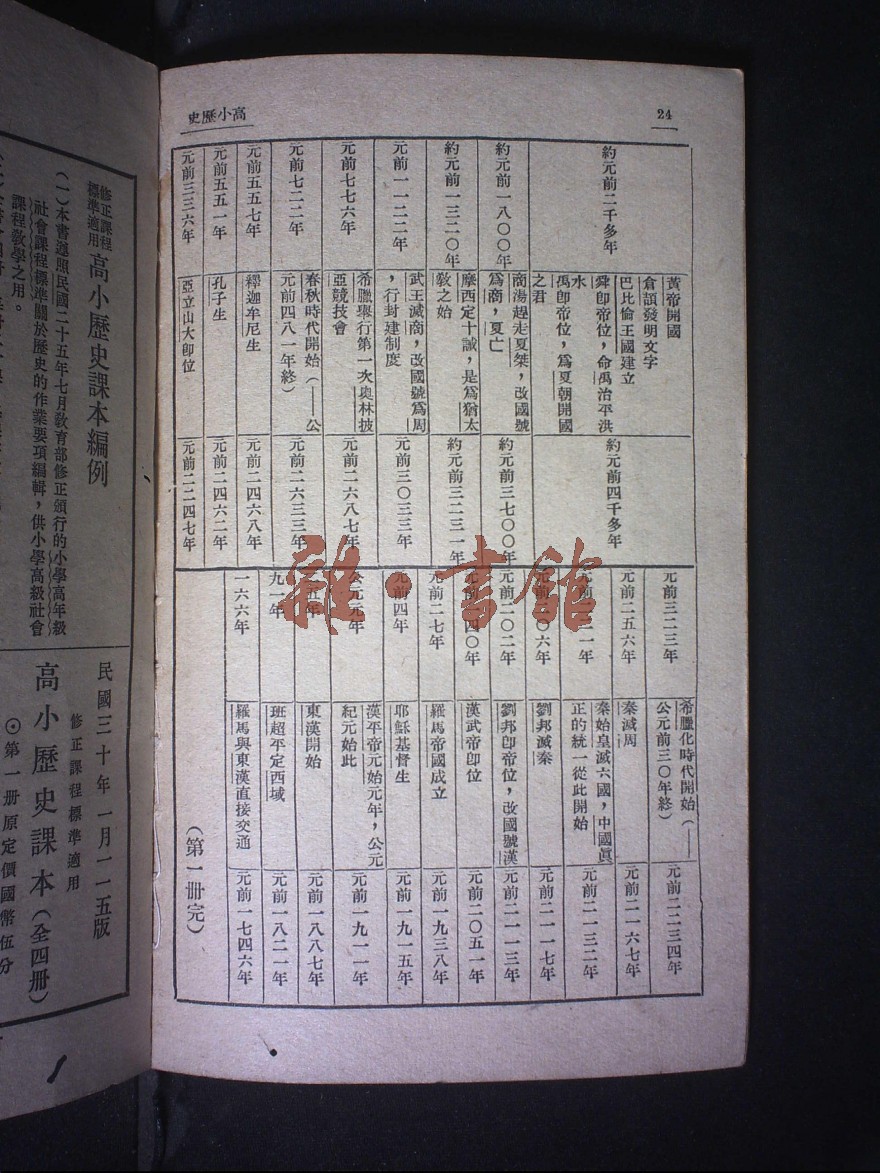 高小歷史
24
約元前二千多年
黃帝開國
倉頡發明文字
巴比倫王國建立
舜卽帝位，命禹治平洪
水
禹卽帝位，爲夏朝開國
之君
約元前四千多年
約元前一八〇〇年
商湯趕走夏桀，改國號
爲商，夏亡
約元前三七〇〇年
約元前一三二〇年
摩西定十誡，是爲猶太
敎之始
約元前三二三一年
元前一一二二年
武王滅商，改國號爲周
，行封建制度
元前三〇三三年
元前七七六年
希臘舉行第一次奧林披
亞競技會
元前二六八七年
元前七二二年
春秋時代開始（——公
元前四八一年終）
元前二六三三年
元前五五七年
釋迦牟尼生
元前二四六八年
元前五五一年
孔子生
元前二四六二年
元前三三六年
亞立山大卽位
元前二二四七年
元前三二三年
希臘化時代開始（——
公元前三〇年終）
元前二二三四年
元前二五六年
秦滅周
元前二一六七年
元前二二一年
秦始皇滅六國，中國眞
正的統一從此開始
元前二一三二年
元前二〇六年
劉邦滅秦
元前二一一七年
元前二〇二年
劉邦卽帝位，改國號漢
元前二一一三年
元前一四〇年
漢武帝卽位
元前二〇五一年
元前二七年
羅馬帝國成立
元前一九三八年
元前四年
耶穌基督生
元前一九一五年
公元元年
漢平帝元始元年，公元
紀元始此
元前一九一一年
二五年
東漢開始
元前一八八七年
九一年
班超平定西域
元前一八二一年
一六六年
羅馬與東漢直接交通
元前一七四六年
（第一册完）
雜·書館
修正課程
標準適用
高小歷史課本編例
（一）本書遵照民國二十五年七月敎育部修正頒行的小學高年級
社會課程標準關於歷史的作業要項編輯，供小學高級社會
課程敎學之用。
民國三十年一月一一五版
修正課程標準適用
高小歷史課本（全四册）
⊙第一册原定價國幣伍分